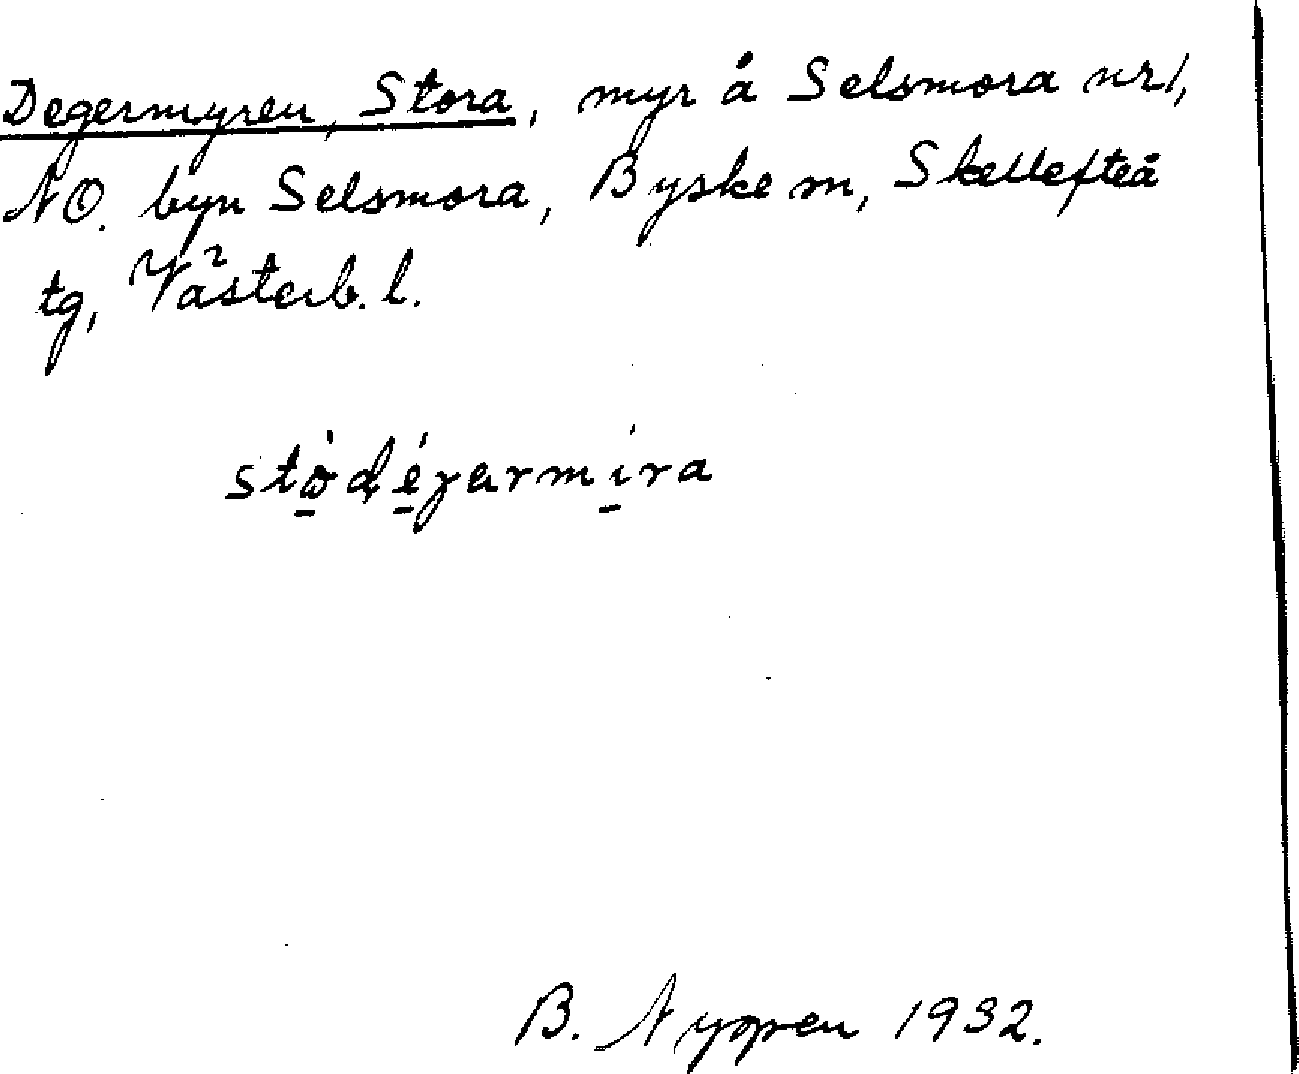 Degermyren, Stora, myr å Selsmora nr 1,
NO. byn Selsmora, Byske sn, Skellefteå
tg, Västerb. l.
stòdéjarmíra
B. Nygren 1932.